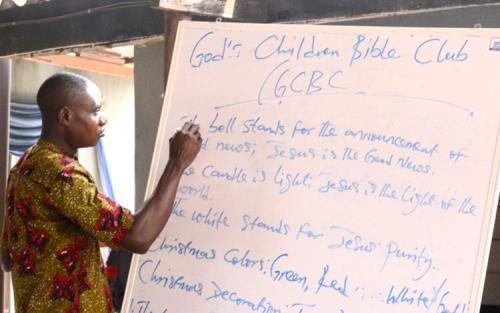 God's Children Bible Club
(GCBC
bell stands for the announcement of
news; Jesus is the Good News.
Candle is light; Jesus is the Light of the
world.
The white stands for Jesus' purity.
Christmas Colors: Green, Red White
Christmas Decoration: